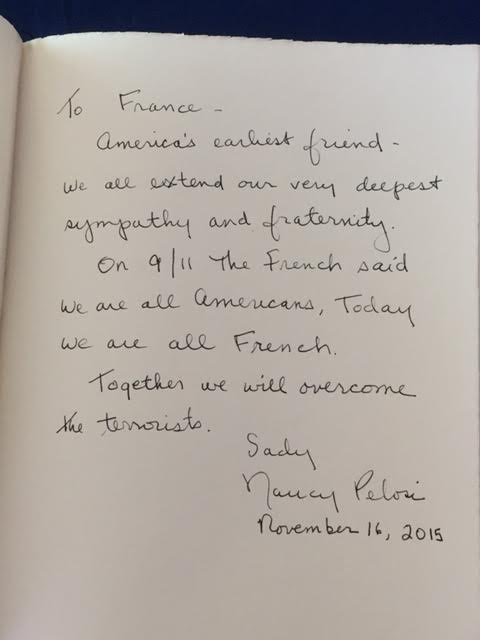 To France -
America's earliest friend -
We all extend our very deepest
sympathy and fraternity.
On 9/11 The French said
We are all Americans, Today
We are all French.
Together we will overcome
the terrorists.
Sadly
Nancy Pelosi
November 16, 2015